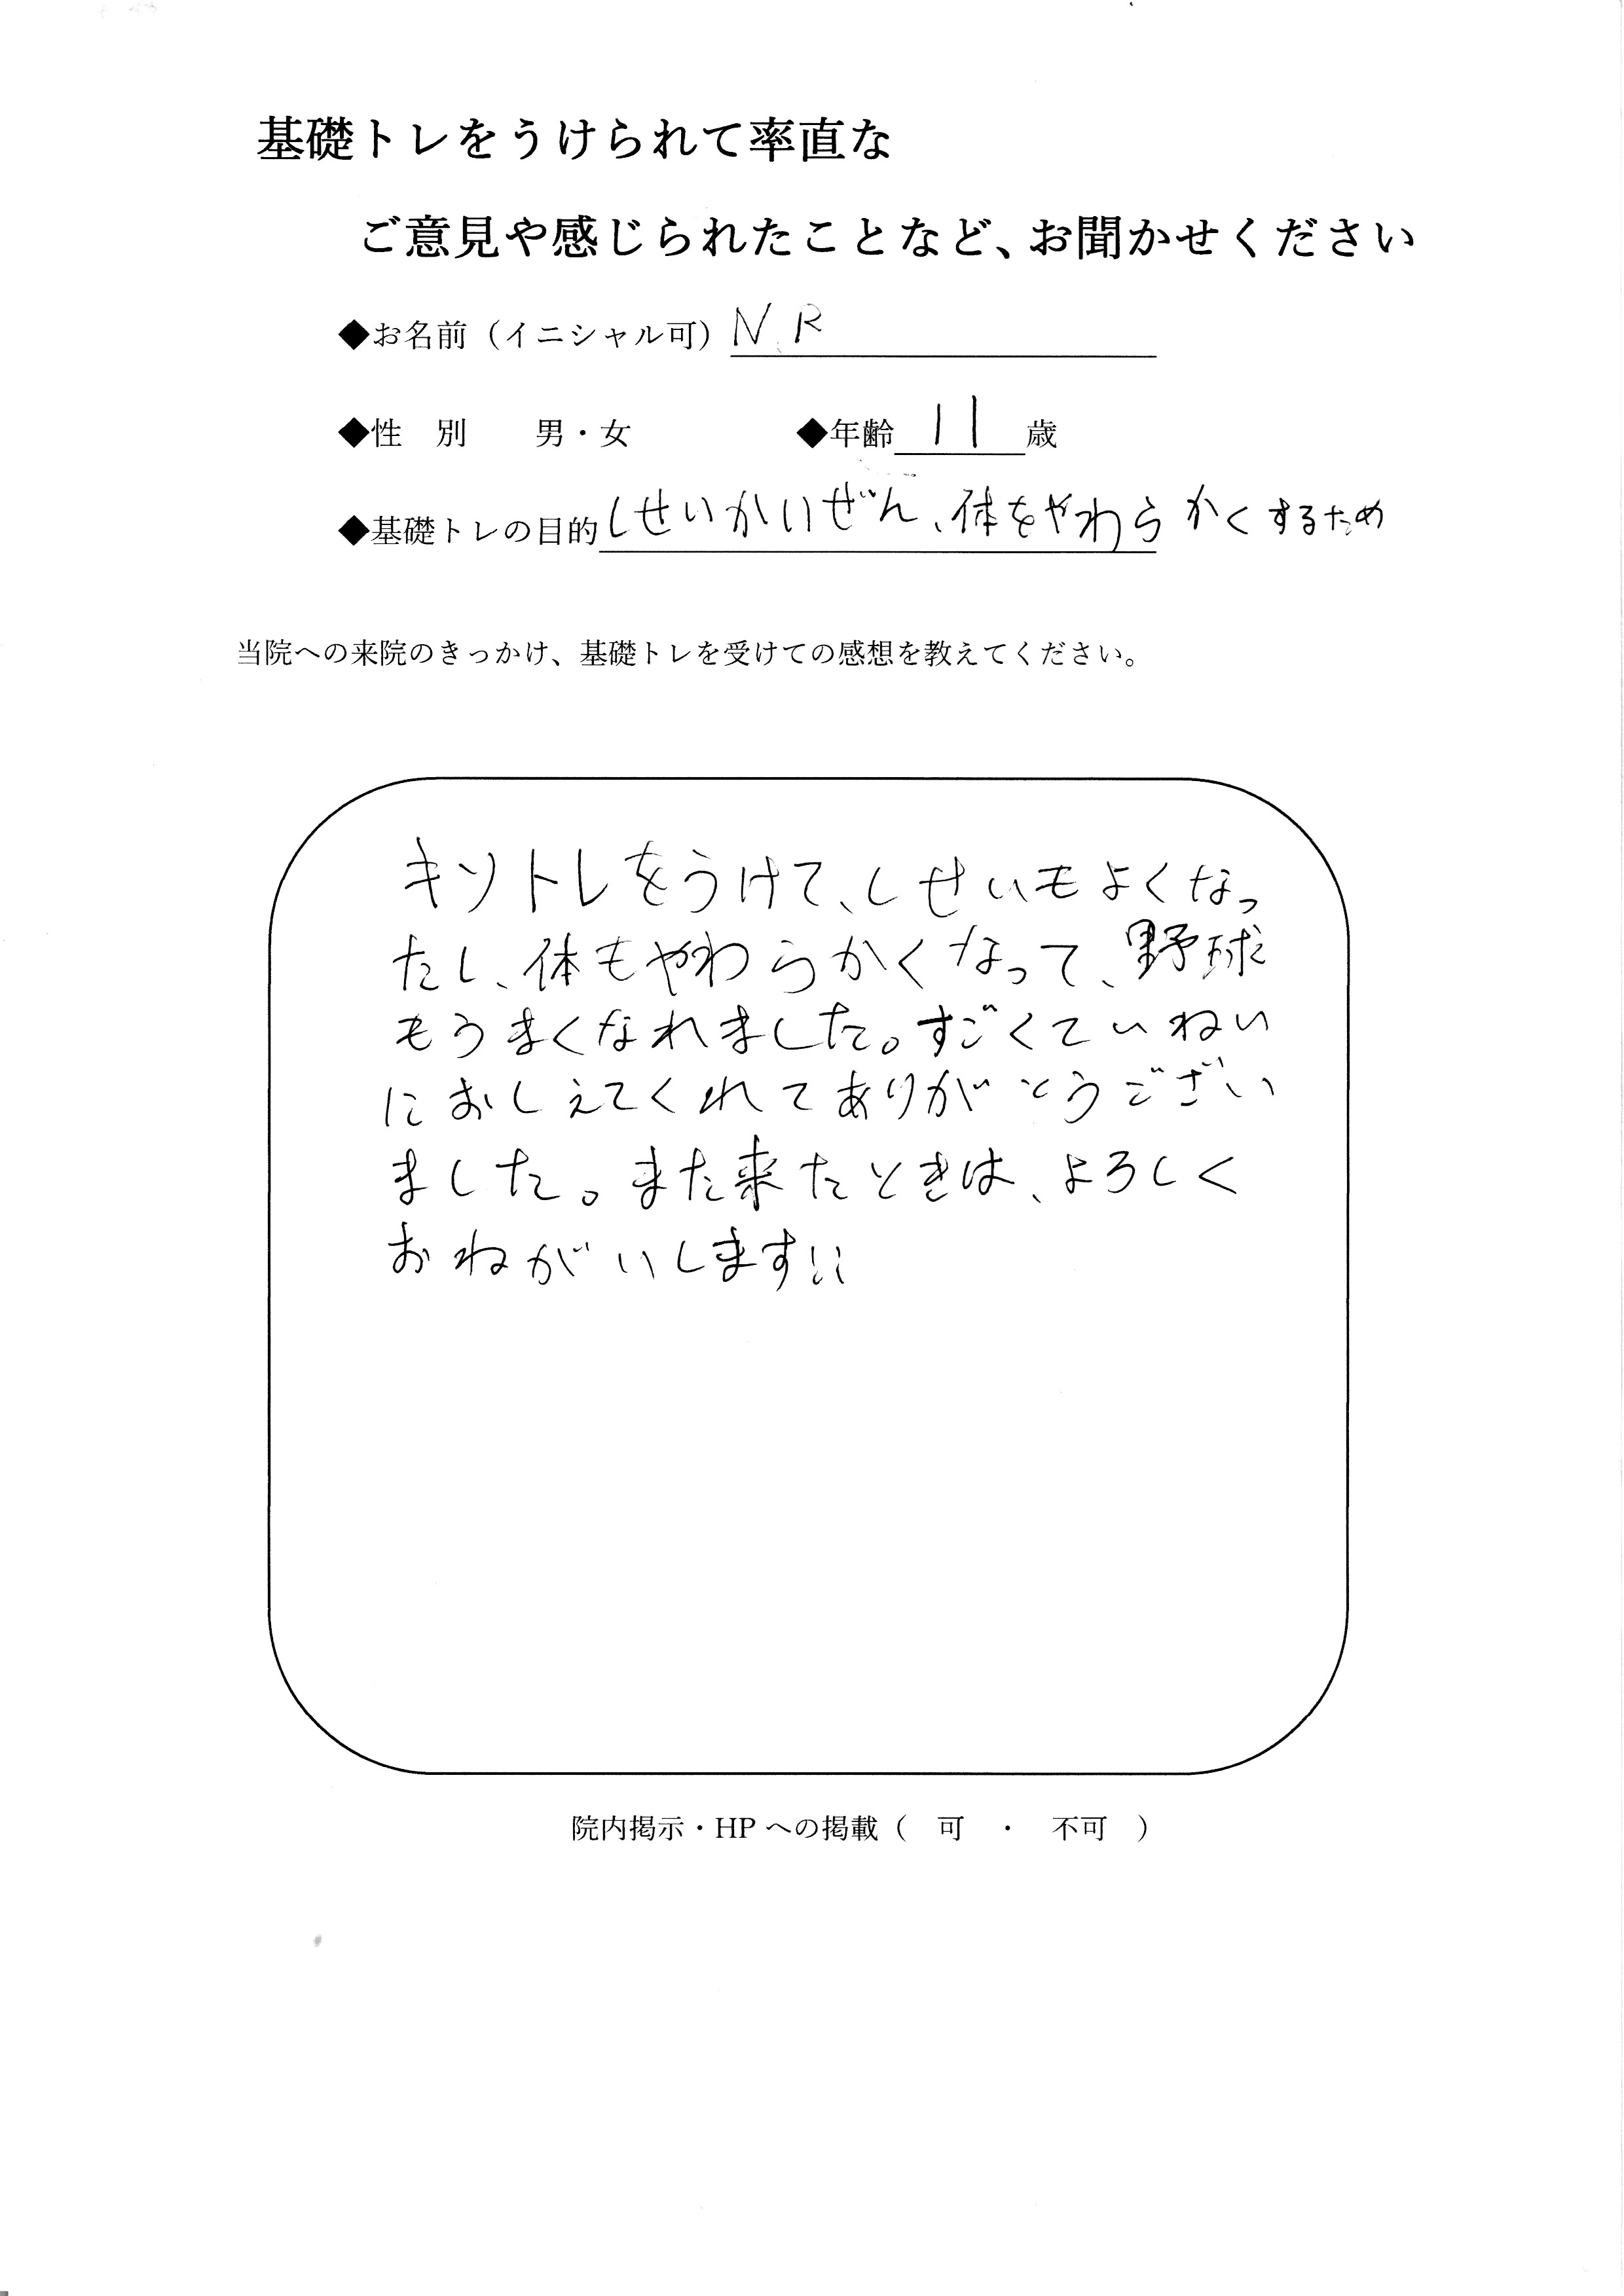 基礎トレをうけられて率直な
ご意見や感じられたことなど、お聞かせください
◆お名前（イニシャル可） N.R
◆性　別　　男・女　　　　　◆年齢 11 歳
◆基礎トレの目的 しせいかいぜん、体をやわらかくするため
当院への来院のきっかけ、基礎トレを受けての感想を教えてください。
キソトレをうけて、しせいもよくなっ
たし、体もやわらかくなって、野球
もうまくなれました。すごくていねい
におしえてくれてありがとうござい
ました。また来たときは、よろしく
おねがいします!!
院内掲示・HPへの掲載（　可　・　不可　）